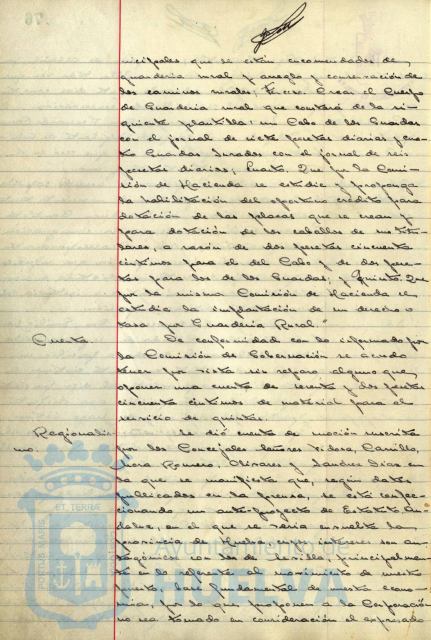 nicipales, que se estén encomendados de
guardería rural y arreglo y conservación de
los caminos rurales; Tercero. Crear el Cuerpo
de Guardería rural que constará de la si-
guiente plantilla: un Cabo de los Guardas
con el jornal de siete pesetas diarias y cua-
tro Guardas Jurados con el jornal de seis
pesetas diarias; Cuarto. Que por la Comi-
sión de Hacienda se estudie y proponga
la habilitación del oportuno crédito para
dotación de las placas que se crean y
para dotación de los caballos de
a razón de dos pesetas cincuenta
céntimos para el del Cabo y de dos pese-
tas para los de los Guardas; y Quinto. Que
por la misma Comisión de Hacienda se
estudie la implantación de un derecho o
tasa por Guardería Rural."
Cuenta
De conformidad con lo informado por
la Comisión de Gobernación se acordó
tener por vista sin reparo alguno que
oponer una cuenta de y dos pesetas
cincuenta céntimos de material para el
servicio de quintas.
Regionalis-
mo.
Se dió cuenta de moción suscrita
por los Concejales señores Carrillo,
Mora Romero, Olivares y Sánchez Díaz en
la que se manifiesta que, según datos
publicados en la prensa, se está confec-
cionando un ante-proyecto de Estatuto An-
daluz, en el que se vería envuelta la
provincia de Huelva cuyos intereses son an-
tagónicos con los de Sevilla, principalmen-
te en lo referente al movimiento de nuestro
puerto, base fundamental de nuestra econo-
mía, por lo que proponen a la Corporación
no sea tomado en consideración el expresado
Ayuntamiento de
HUELVA